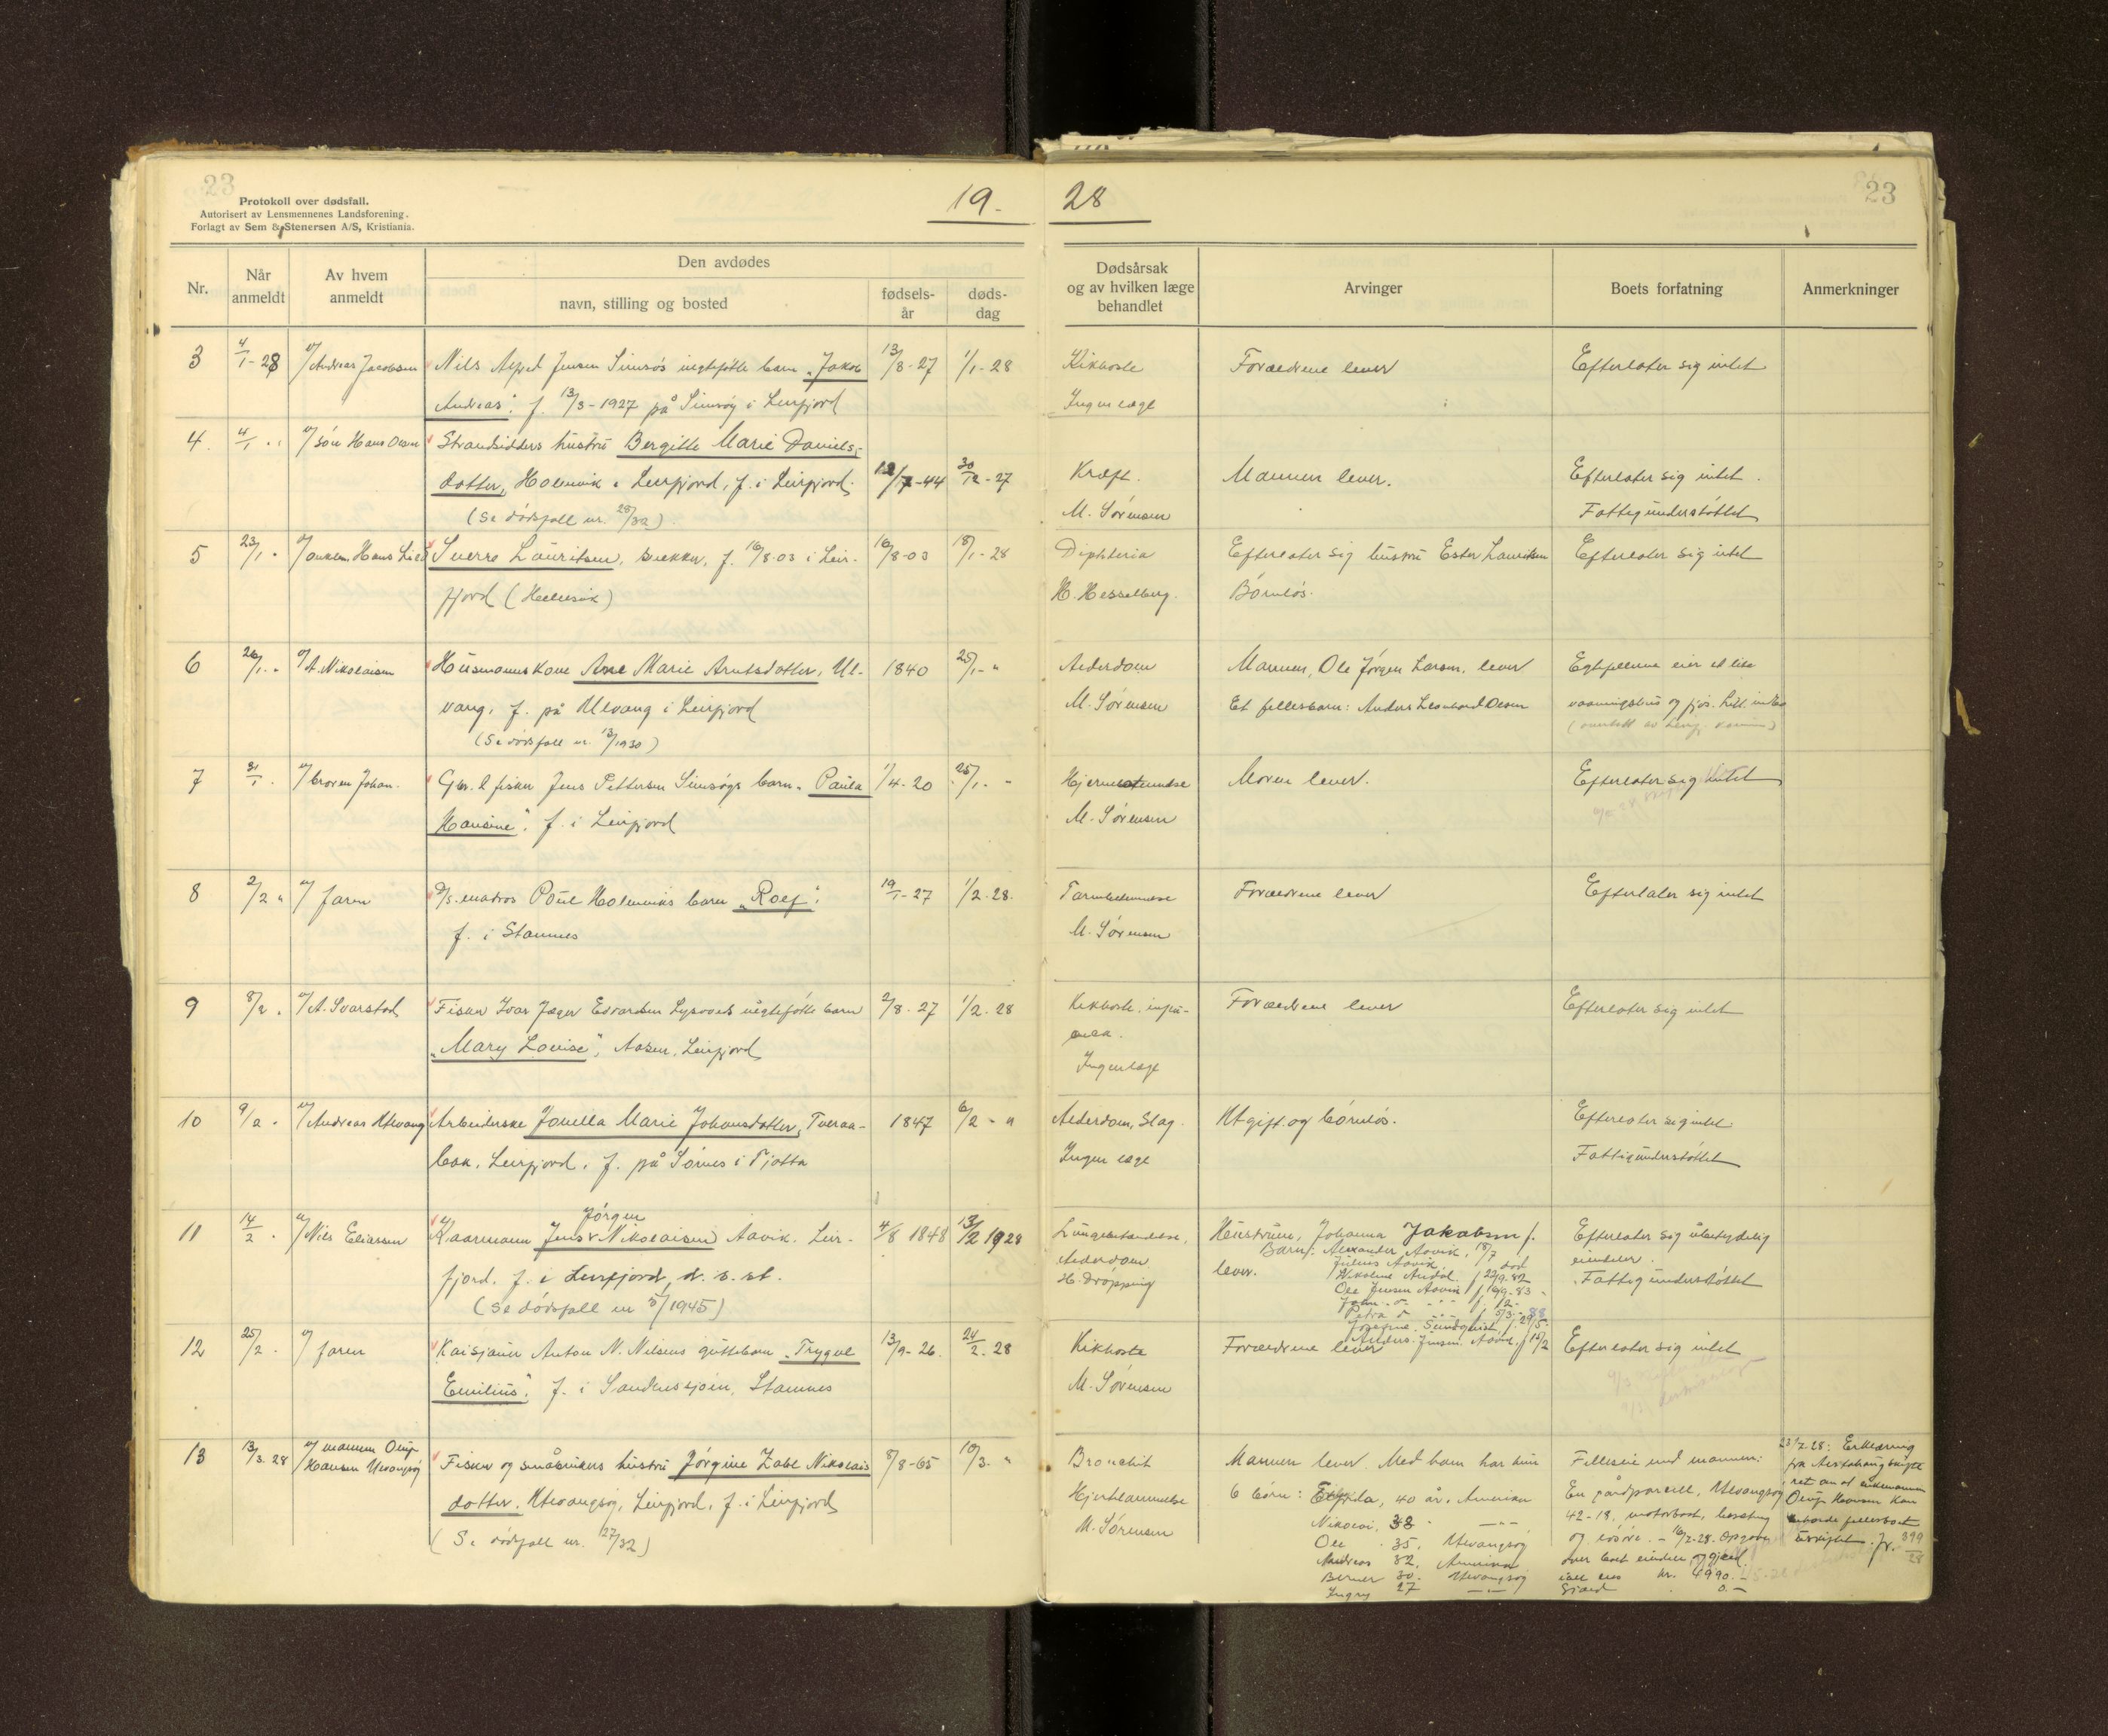 23
Protokoll over dødsfall.
Autorisert av Lensmennenes Landsforening.
Forlagt av Sem & Stenersen A/S, Kristiania.
19 - 28
23
Nr.
Når anmeldt
Av hvem anmeldt
Den avdødes
navn, stilling og bosted
fødsels-år
døds-dag
Dødsårsak og av hvilken læge behandlet
Arvinger
Boets forfatning
Anmerkninger
3 4/1-28 v/ Andreas Jacobsen Nils Alfred Jensen Simsøs uegtefødte barn „Jakob 13/3-27 1/1-28 Kikhoste Forældrene lever Efterlater sig intet
Andreas". f. 13/3-1927 på Simsøy i Leirfjord Ingen læge
4. 4/1 - v/ søn Hans Olsen Strandsidders hustru Bergitte Marie Daniels-
dotter, Holmvik i Leirfjord, f. i Leirfjord. 12/7-44 30/12-27 Kræft. Mannen lever. Efterlater sig intet.
(Se dødsfall nr. 28/32) M. Sørensen Fattigunderstøttet
5 23/1 - v/ onklen Hans Sverre Lauritsen, f. 16/8-03 i Leir- 16/8-03 18/1-28 Diphteria Efterlater sig hustru Ester Lauritsen Efterlater sig intet
fjord (Hellesvik) H. Hesselberg. Børnløs.
6 26/1 - v/ A. Nikolaisen Husmannskone Ane Marie Arntsdotter, Ul- 1840 25/1 - " Alderdom Mannen, Ole Jørgen Larsen, lever Egtefellene eier et lite
vang, f. på Ulvang i Leirfjord M. Sørensen Et fellesbarn: Anders Leonhard Olsen vaaningshus og fjøs. Litt indbo
(Se dødsfall nr. 13/1930)
7 31/1 v/ broren Johan. Gbr. & fisker Jens Pettersen Simsøys barn „Paula 1/4-20 25/1 - Hjernebetendelse Moren lever. Efterlater sig intet
Hansine". f. i Leirfjord M. Sørensen
8 2/2 " v/ faren D/s. matros Poul Holmviks barn „Rolf". 19/1-27 1/2-28. Tarmbetendelse Forældrene lever Efterlater sig intet
f. i Stamnes M. Sørensen
9 8/2 . v/ A. Svarstad Fisker Ivar Jæger Edvardsen Lysvolds uegtefødte barn 2/8-27 1/2-28 Kikhoste, influ- Forældrene lever Efterlater sig intet
„Mary Louise", Aasen, Leirfjord enza.
Ingen læge
10 9/2 . v/ Andreas Ulvang Arbeiderske Jonella Marie Johansdotter, Tveraa- 1847 6/2 - " Alderdom, Slag. Ugift og børnløs. Efterlater sig intet
bak, Leirfjord, f. på Sørnes i Tjøtta Ingen læge Fattigunderstøttet
11 14/2 . v/ Nils Eliassen Kaarmann Jens Jørgen Nikolaisen Aavik. Leir- 4/8 1848 13/2 1928 Lungebetendelse, Hustruen, Johanna Jakobsen f. Efterlater sig ubetydelig
fjord. f. i Leirfjord, d. s. st. Alderdom lever. eiendeler.
(Se dødsfall nr 5/1945) H. Dröpping Fattigunderstøttet
Barn: Alexander Aavik, 18/7
Julius Aavik, død
Nikoline Andal. f 22/9-82
Ole Jensen Aavik f 19/9-83
Petra
Josefine Sundquist f. 29/5
Anders Jensen Aavik f 15/2
12 25/2 . v/ faren Kaisjauer Anton N. Nilsens guttebarn „Trygve 13/9-26. 24/2-28 Kikhoste Forældrene lever Efterlater sig intet
Emilius". f. i Sandnessjøen, Stamnes M. Sørensen
13 13/3 28 v/ mannen Oluf Hansen Ulvangsøy Fisker og småbrukers hustru Jørgine Zabl Nikolais 8/8-65 10/3 - " Bronchit Mannen lever. Med ham har hun Felleseie med mannen:
dotter. Ulvangsøy, Leirfjord, f. i Leirfjord Hjertelammelse 6 børn: Elfrida, 40 år. Amerika En gårdparcell, Ulvangsøy
(Se dødsfall nr. 27/32) M. Sørensen Nikolai, 38 - —"— 42-18, motorbaat, besetning
Ole 35, Ulvangsøy og løsøre. - 16/7-28. Opgave
Andreas 32. Amerika over boet eiendeler og gjeld.
Berner 30. Ulvangsøy kr. 4990.-
Ingry 27 —"— Gjæld 0.-
23/7-28: Erklæring
fra Alstahaug skifte
ret om at enkemannen
Oluf Hansen kan
fellesboet
uskiftet. Jr. 399/28